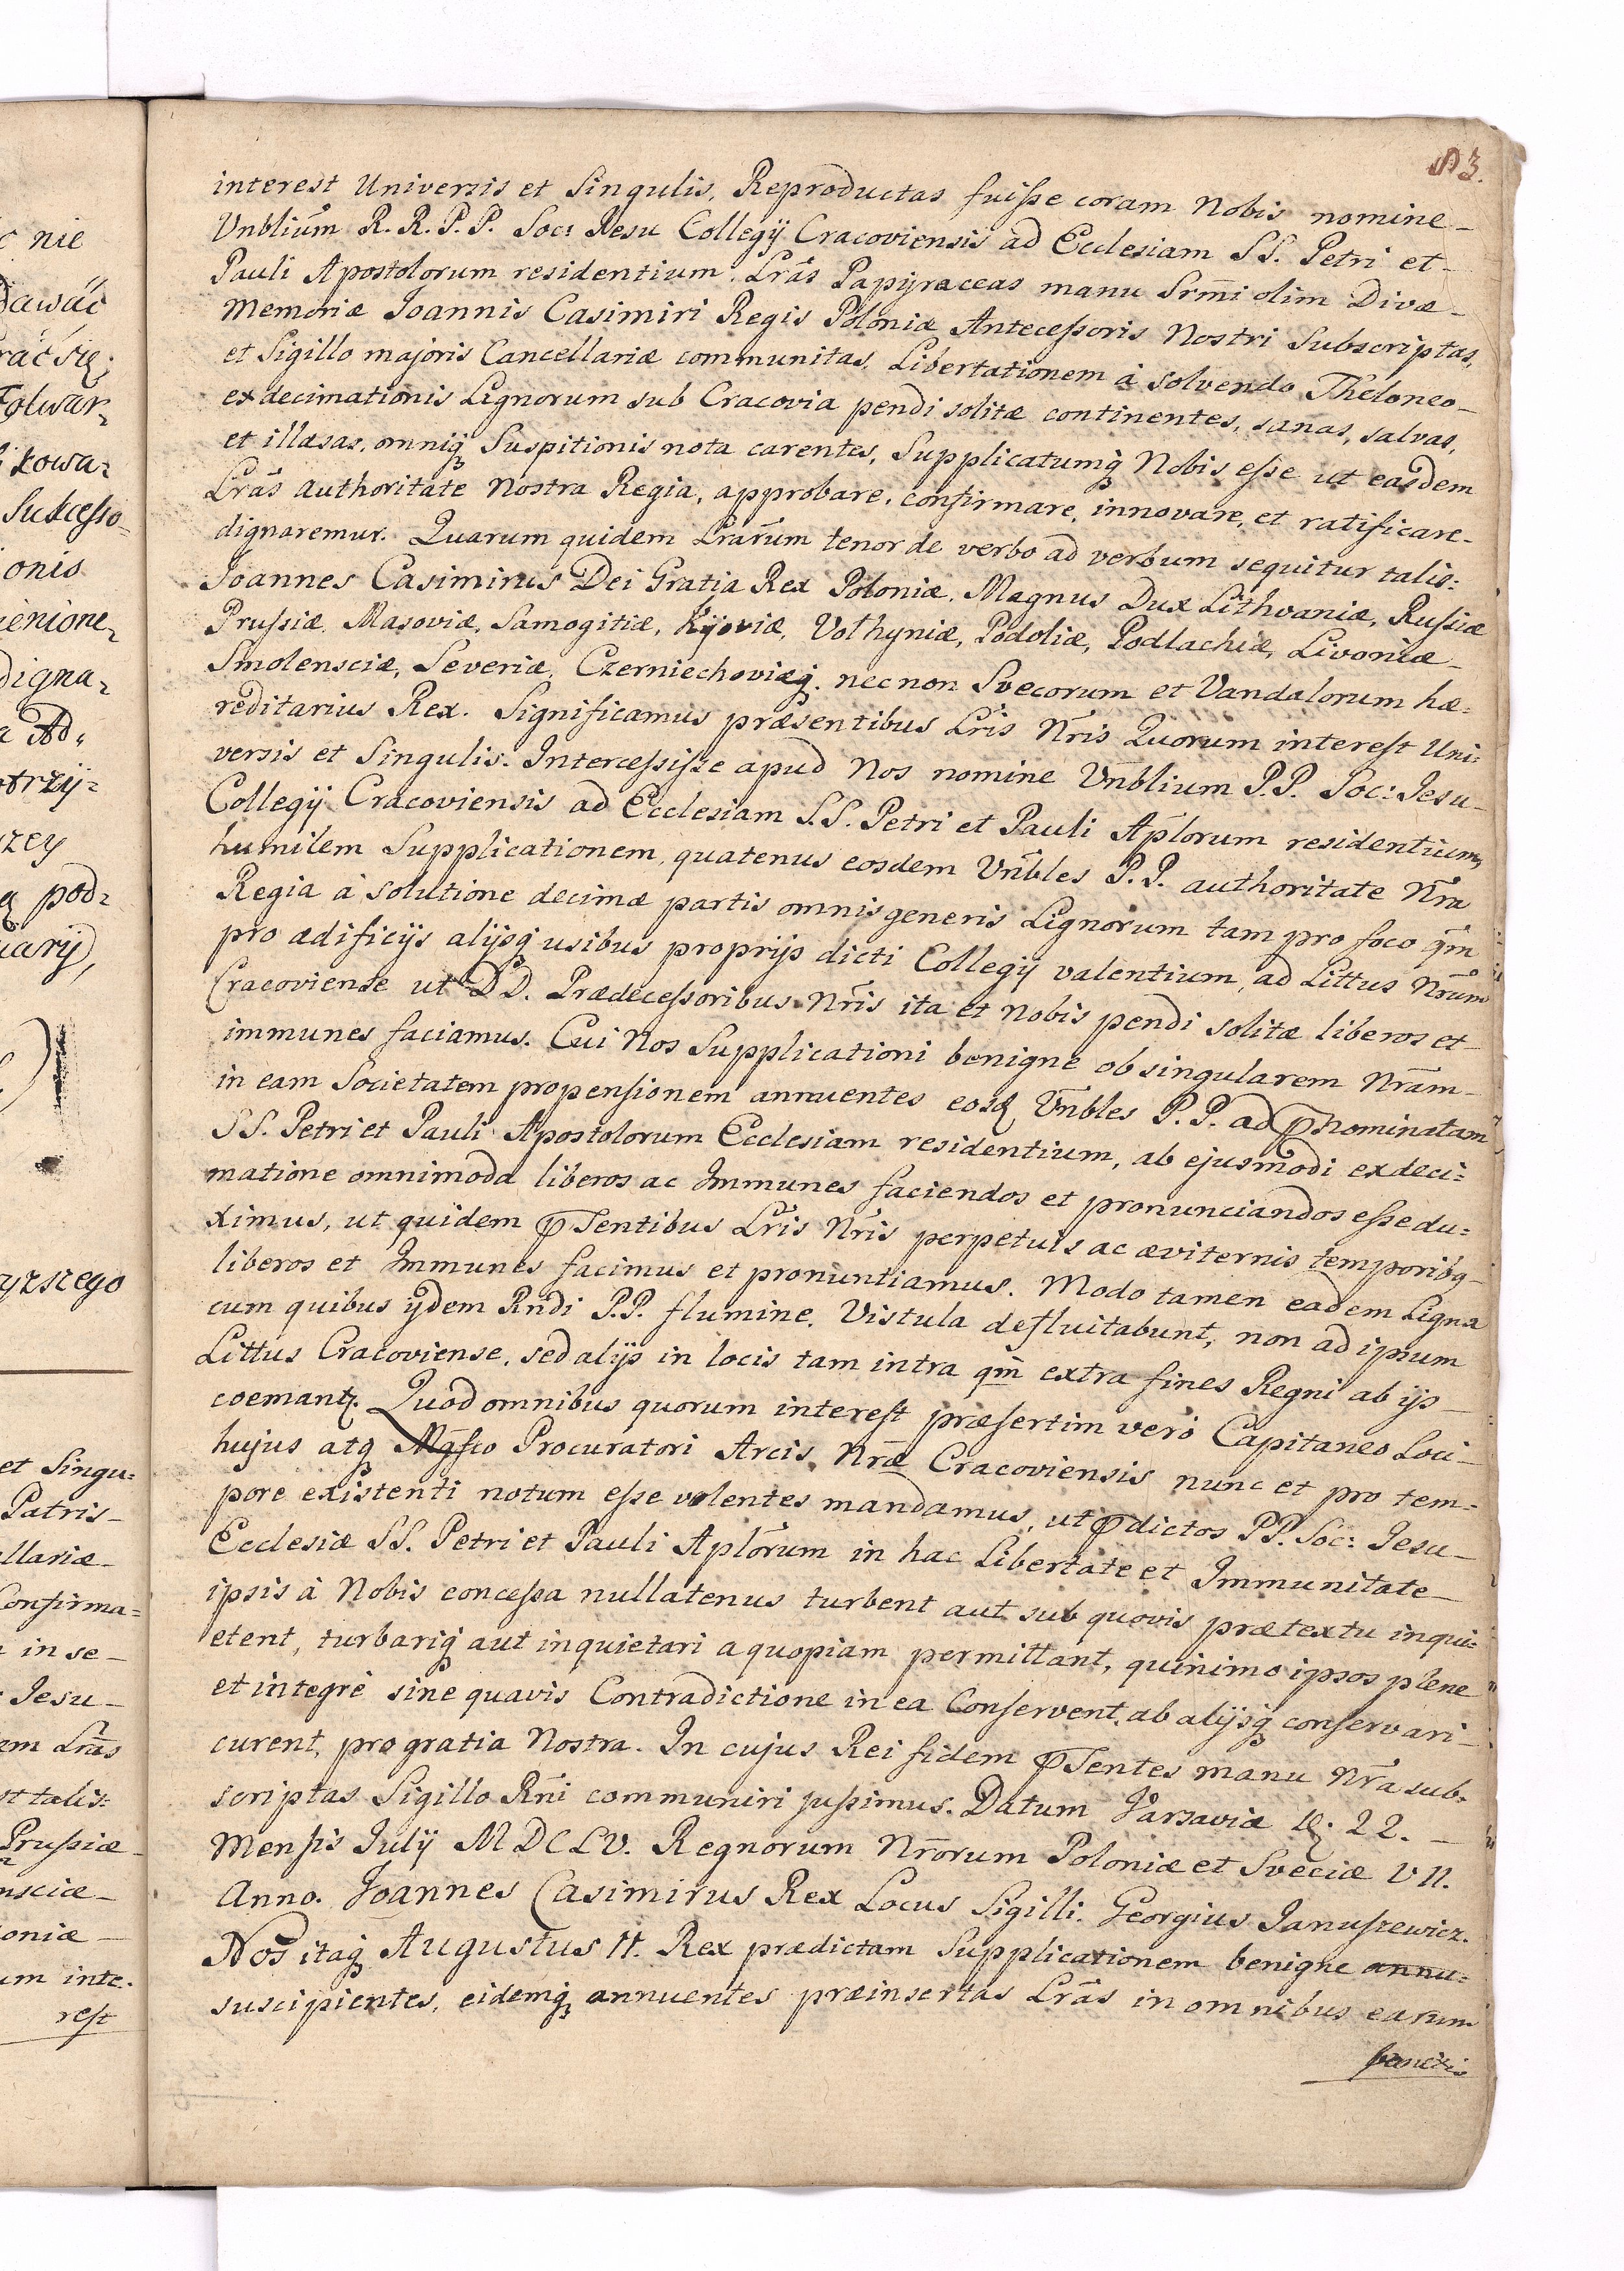 83.
interest Universis et Singulis, Reproductas fuisse coram Nobis nomine_
Vnbliūm R. R. P. P. Soc: Jesu Collegÿ Cracoviensis ad Ecclesiam SS. Petri et_
Pauli Apostolorum residentium. Lrās Papÿraceas manu Srm̄i olim Divæ_
Memoriæ Joannis Casimiri Regis Poloniæ Antecessoris Nostri Subscriptas,
et Sigillo majoris Cancellariæ communitas, Libertationem à solvendo Theloneo_
ex decimationis Lignorum sub Cracovia pendi solitæ continentes, sanas, salvas,
et illæsas, omniq̨ Suspitionis nota carentes, Supplicatumq̨ Nobis esse ut easdem
Lrās Authoritate Nostra Regia, approbare, confirmare, innovare, et ratificare_
dignaremur. Quarum quidem Lrarūm tenor de verbo ad verbum sequitur talis:
Joannes Casimirus Dei Gratia Rex Poloniæ, Magnus Dux Lithvaniæ, Russiæ
Prussiæ, Masoviæ, Samogitiæ, Kÿoviæ, Volhyniæ, Podoliæ, Podlachiæ, Livoniæ_
Smolensciæ, Severiæ, Czerniechoviæq̨. necnon Svecorum et Vandalorum hæ:
reditarius Rex. Significamus præsentibus Lris Nr̄is Quorum interest Uni:
versis et Singulis. Intercessisse apud Nos nomine Vn̄blium P.P. Soc: Jesu_
Collegÿ Cracoviensis ad Ecclesiam S.S. Petri et Pauli Ap̄lorum residentium,
humilem Supplicationem, quatenus eosdem Vn̄bles P.P. authoritate Nr̄a
Regia à solutione decimæ partis omnis generis Lignorum tam pro foco qm̄
pro ædificÿs alÿsq̨ usibus proprÿs dicti Collegÿ valentium, ad Littus Nr̄um
Cracoviense ut DD. Prædecessoribus Nr̄is ita et Nobis pendi solitæ liberos et_
immunes faciamus. Cui Nos Supplicationi benigne ob singularem Nrām_
in eam Societatem propensionem annuentes eosd Vn̄bles P.P. ad p̄nominatam
SS. Petri et Pauli Apostolorum Ecclesiam residentium, ab ejusmodi exdeci:
matione omnimoda liberos ac Immunes faciendos et pronunciandos esse du:
ximus, ut quidem p̄sentibus Lr̄is Nr̄is perpetuis ac æviternis temporibq_
liberos et Immunes facimus et pronuntiamus. Modo tamen eadem Ligna
cum quibus ÿdem Rndi P.P. flumine, Vistula defluitabunt, non ad ipsum
Littus Cracoviense, sed alÿs in locis tam intra qm̄ extra fines Regni ab ÿs_
coemantz. Quod omnibus quorum interest præsertim verò Capitaneo Loci_
hujus atq̨ Mgfco Procuratori Arcis Nrǣ Cracoviensis nunc et pro tem:
pore existenti notum esse volentes mandamus, ut p̄dictos PP. Soc: Jesu_
Ecclesiæ SS. Petri et Pauli Aplōrum in hac Libertate et Immunitate_
ipsis à Nobis concessa nullatenus turbent aut sub quovis prætextu inqui:
etent, turbariq̨ aut inquietari a quopiam permittant, quinimo ipsos plene
et integrè sine quavis Contradictione in ea Conservent, ab alÿsq̨ conservari_
curent, pro gratia Nostra. In cujus Rei fidem p̄sentes manu Nr̄a sub:
scriptas Sigillo Rn̄i communiri jussimus. Datum Varsaviæ D. 22. _
Mensis Julÿ MDCLV. Regnorum Nrōrum Poloniæ et Sveciæ VII.
Anno. Joannes Casimirus Rex Locus Sigilli. Georgius Januszewicz.
Nos itaq̨ Augustus II. Rex prædictam Supplicationem benigne annu:
suscipientes, eidemq̨ annuentes præinsertas Lrās in omnibus earum
punctis
ć nie
dawać
Folwar,
kowa,
Sukcesso_
onis
ienione,
digna,
a Ad„
trzÿ:
zey
pod:
uarÿ,
yzszego
et Singu:
Patris_
llariæ_
Confirma:
in se_
Jesu_
em Lrās
st talis:
Prussiæ_
nsciæ_
oniæ_
um inte.
rest